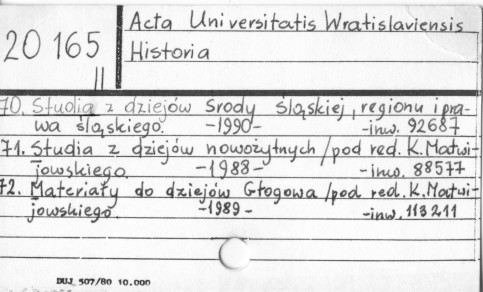 Acta Universitatis Wratislaviensis
20 165
II
Historia
70. Studia z dziejów Środy Śląskiej, regionu i pra-
wa śląskiego. -1990- -inw. 92687
71. Studia z dziejów nowożytnych /pod red. K. Matwi-
jowskiego. -1988- -inw. 88577
72. Materiały do dziejów Głogowa /pod red. K. Matwi-
jowskiego. -1989- -inw. 113211
DUJ 507/80 10.000